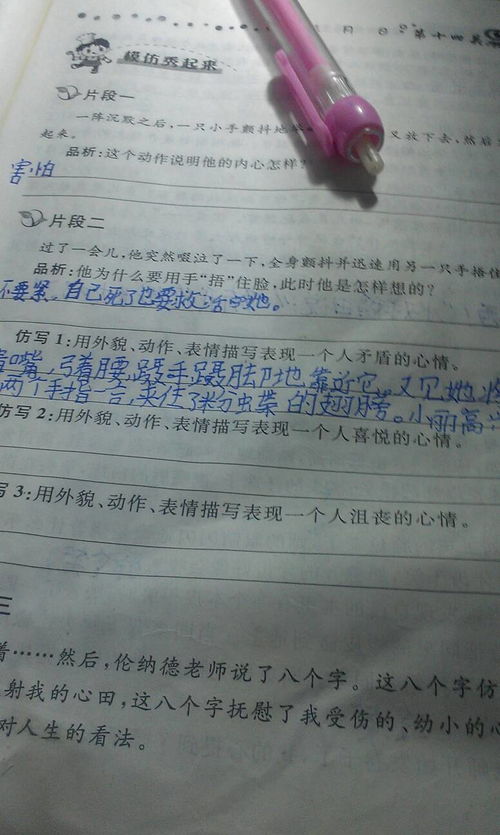 月 日 第十四关
模仿秀起来
片段一
一阵沉默之后，一只小手颤抖地举 又放下去，然后
起来。
品析：这个动作说明他的内心怎样？
害怕
片段二
过了一会儿，他突然啜泣了一下，全身颤抖并迅速用另一只手捂住
品析：他为什么要用手“捂”住脸，此时他是怎样想的？
不要紧，自己死了也要救活她。
仿写1：用外貌、动作、表情描写表现一个人矛盾的心情。
嘴，弓着腰，蹑手蹑脚地靠近它，又见她
两个手指一合，夹住了粉虫蝶的翅膀。小丽高
仿写2：用外貌、动作、表情描写表现一个人喜悦的心情。
写3：用外貌、动作、表情描写表现一个人沮丧的心情。
三
着……然后，伦纳德老师说了八个字。这八个字仿
射我的心田，这八个字抚慰了我受伤的、幼小的心
对人生的看法。